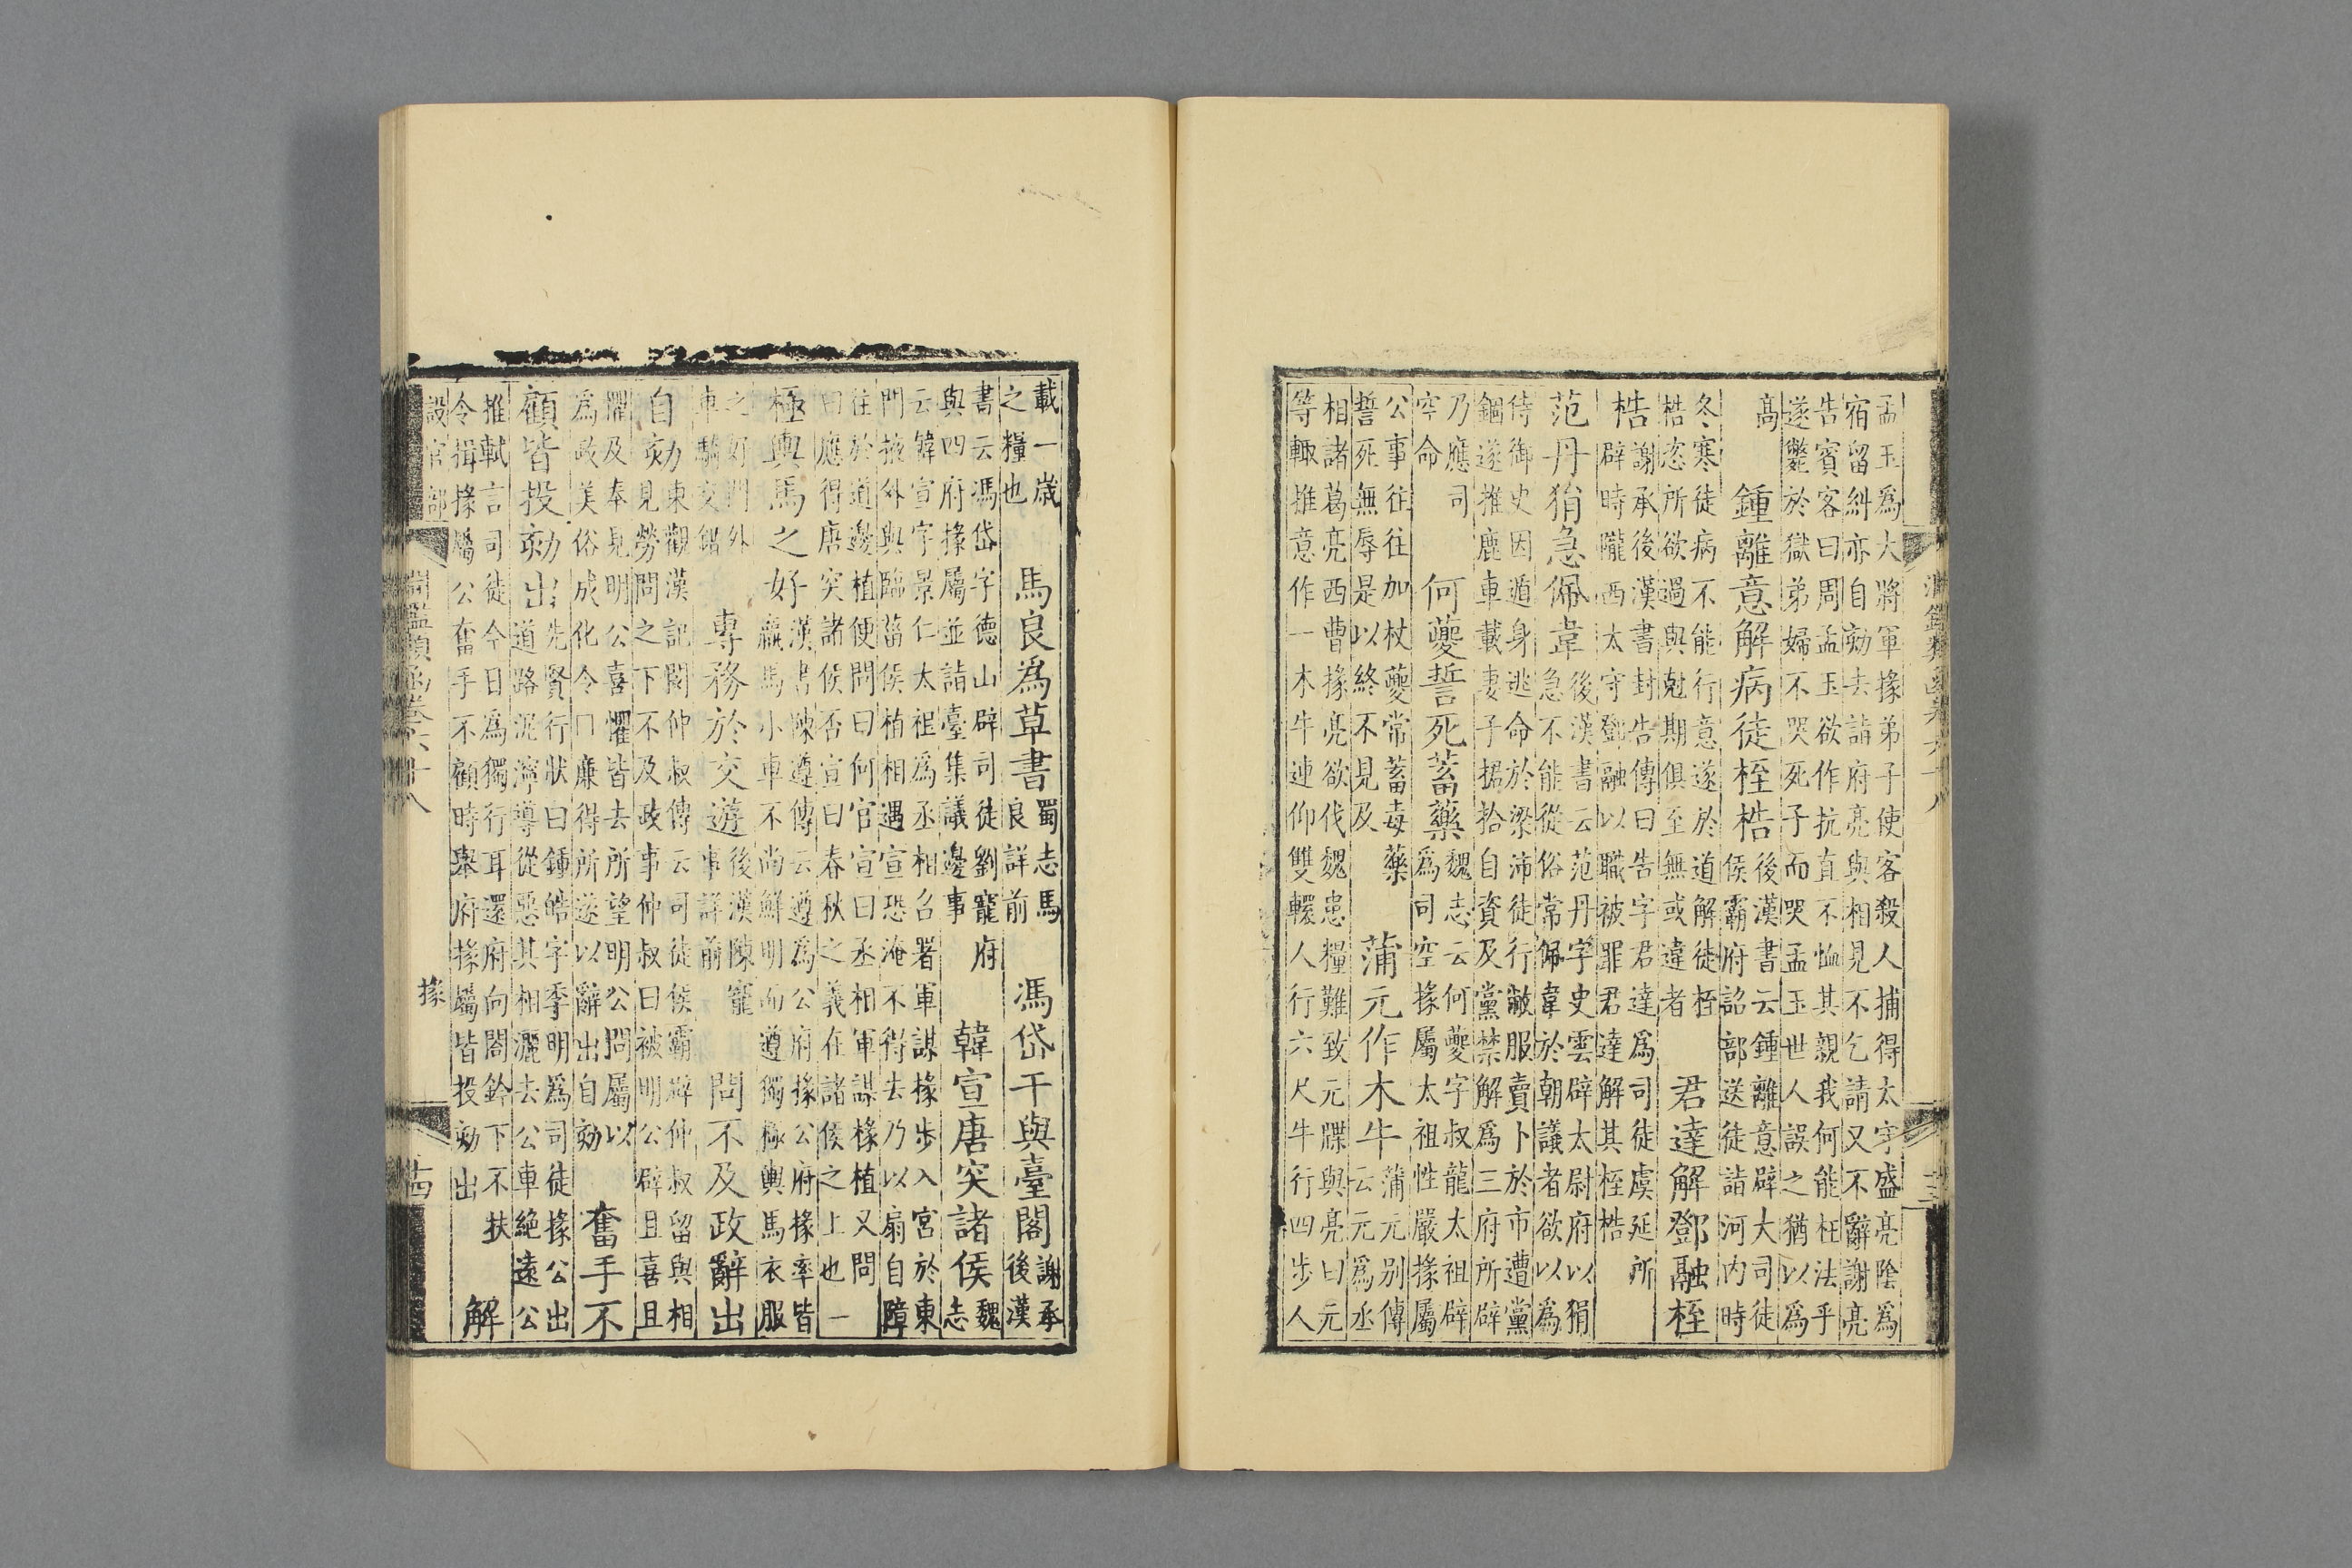 孟玉爲大將軍掾弟子使客殺人捕得太守盛亮陰爲
宿留糾亦自劾去詣府亮與相見不乞請又不辭謝亮
告賓客曰周孟玉欲作抗直不恤其親我何能枉法乎
遂斃於獄弟婦不哭死子而哭孟玉世人誤之猶以爲
高
鍾離意解病徒桎梏
後漢書云鍾離意辟大司徒
侯霸府詔部送徒詣河內時
冬寒徒病不能行意遂於道解徒桎
梏恣所欲過與尅期俱至無或違者
君達解鄧融桎
梏
謝承後漢書封告傳曰告字君達爲司徒虞延所
辟時隴西太守鄧融以職被罪君達解其桎梏
范丹狷急佩韋
後漢書云范丹字史雲辟太尉府以狷
急不能從俗常佩韋於朝議者欲以爲
侍御史因遁身逃命於梁沛徒行敝服賣卜於市遭黨
錮遂推鹿車載妻子捃拾自資及黨禁解爲三府所辟
乃應司
空命
何夔誓死蓄藥
魏志云何夔字叔龍太祖辟
爲司空掾屬太祖性嚴掾屬
公事往往加杖夔常蓄毒藥
誓死無辱是以終不見及
蒲元作木牛
蒲元別傳
云元爲丞
相諸葛亮西曹掾亮欲伐魏患糧難致元牒與亮曰元
等輙推意作一木牛連仰雙轅人行六尺牛行四步人
載一歲
之糧也
馬良爲草書
蜀志馬
良詳前
馮岱干與臺閣
謝承
後漢
書云馮岱字德山辟司徒劉寵府
與四府掾屬並詣臺集議邊事
韓宣唐突諸侯
魏
志
云韓宣字景仁太祖爲丞相召署軍謀掾步入宮於東
門掖外與臨菑侯植相遇宣恐淹不得去乃以扇自障
往於道邊植便問曰何官宣曰丞相軍謀掾植又問
曰應得唐突諸侯否宣曰春秋之義在諸侯之上也一
極輿馬之好
漢書陳遵傳云遵爲公府掾公府掾率皆
羸馬小車不尚鮮明而遵獨極輿馬衣服
之好門外
車騎交錯
專務於交遊
後漢陳寵
事詳前
問不及政辭出
自劾
東觀漢記閻仲叔傳云司徒侯霸辟仲叔留與相
見勞問之下不及政事仲叔曰被明公辟且喜且
懼及奉見明公喜懼皆去所望明公問屬以
爲政美俗成化令口廉得所遂以辭出自劾
奮手不
顧皆投劾出
先賢行狀曰鍾皓字季明爲司徒掾公出
道路泥濘導從惡其相灑去公車絕遠公
推軾言司徒今日爲獨行耳還府向閤鈴下不扶
令揖掾屬公奮手不顧時舉府掾屬皆投劾出
解
設官部
掾